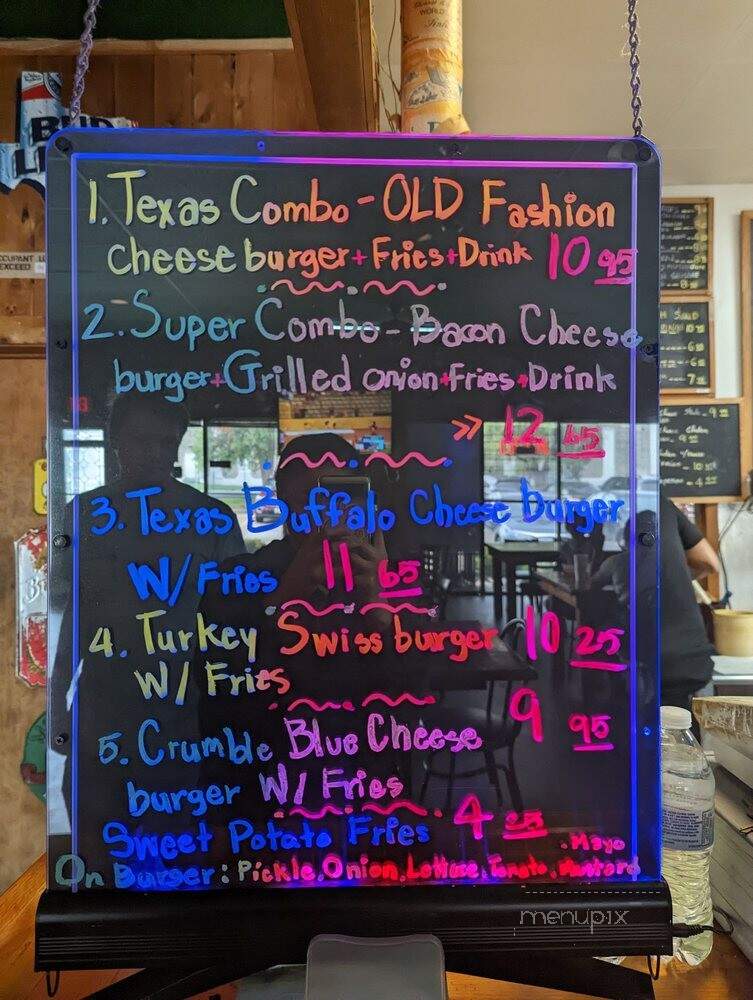 BUD
OCCUPANT
EXCEED
1. Texas Combo - OLD Fashion
cheese burger + Fries + Drink 10 95
2. Super Combo - Bacon Cheese
burger + Grilled onion + Fries + Drink
>> 12 65
3. Texas Buffalo Cheese burger
W/ Fries 11 65
4. Turkey Swiss burger 10 25
W/ Fries
5. Crumble Blue Cheese 9 95
burger W/ Fries
Sweet Potato Fries 4
. Mayo
On Burger: Pickle, Onion, Lettuce, Tomato, Mustard
menupix